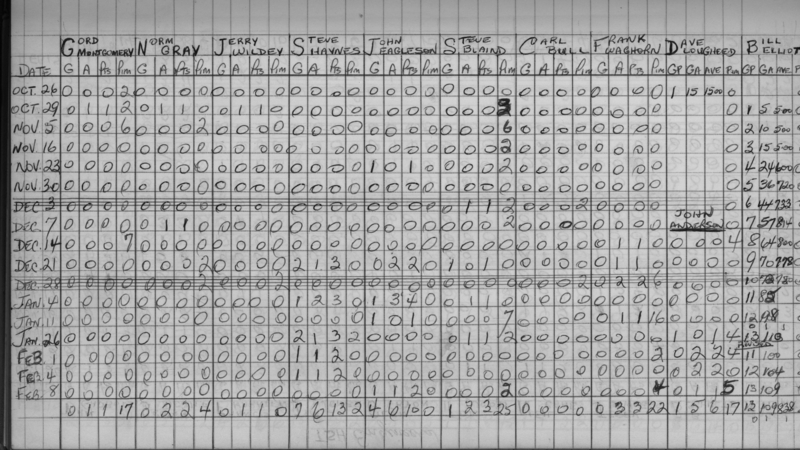 GORD NORM JERRY STEVE JOHN STEVE CARL FRANK DAVE BILL
MONTGOMERY GRAY WILDEY HAYNES EAGLESON BLAIND BULL WAGHORN LOUGHEED ELLIOT
DATE G A Pts Pim G A Pts Pim G A Pts Pim G A Pts Pim G A Pts Pim G A Pts Pim G A Pts Pim G A Pts Pim GP GA AVE Pim GP GA AVE
OCT. 26 0 0 0 2 0 0 0 0 0 0 0 0 0 0 0 0 0 0 0 0 0 0 0 0 0 0 0 0 0 0 0 0 1 15 1500 0
OCT. 29 0 1 1 2 0 1 1 0 0 1 1 0 0 0 0 0 0 0 0 0 0 0 0 0 0 0 0 0 0 0 0 0 1 5 500
NOV. 5 0 0 0 6 0 0 0 2 0 0 0 0 0 0 0 0 0 0 0 0 0 0 0 6 0 0 0 0 0 0 0 0 2 10 500
NOV. 16 0 0 0 0 0 0 0 0 0 0 0 0 0 0 0 0 0 0 0 0 0 0 0 2 0 0 0 0 0 0 0 0 3 15 500
NOV. 23 0 0 0 0 0 0 0 0 0 0 0 0 0 0 0 0 1 0 1 0 0 0 0 2 0 0 0 0 0 0 0 0 4 24 600
NOV. 30 0 0 0 0 0 0 0 0 0 0 0 0 0 0 0 0 0 0 0 0 0 0 0 0 0 0 0 0 0 0 0 0 5 36 720
DEC. 3 0 0 0 0 0 0 0 0 0 0 0 0 0 0 0 0 0 0 0 0 0 1 1 2 0 0 0 2 0 0 0 0 6 44 733
JOHN
DEC. 7 0 0 0 0 0 1 1 0 0 0 0 0 0 0 0 0 0 0 0 0 0 0 0 2 0 0 0 0 0 0 0 0 ANDERSON 0 7 57 814
DEC. 14 0 0 0 7 0 0 0 0 0 0 0 0 0 0 0 0 0 0 0 0 0 0 0 0 0 0 0 0 0 1 1 0 0 0 0 4 8 64 800
DEC. 21 0 0 0 0 0 0 0 2 0 0 0 0 2 1 3 0 0 2 2 0 1 0 1 0 0 0 0 0 0 1 1 0 0 0 0 0 9 70 778
DEC. 28 0 0 0 0 0 0 0 2 0 0 0 2 0 0 0 0 0 0 0 0 0 0 0 0 0 0 0 2 0 2 2 6 0 0 0 0 10
JAN. 4 0 0 0 0 0 0 0 0 0 0 0 0 1 2 3 0 1 3 4 0 0 1 1 0 0 0 0 0 0 0 0 0 0 0 0 0 11
JAN. 11 0 0 0 0 0 0 0 0 0 0 0 0 0 0 0 0 1 0 1 0 0 0 0 7 0 0 0 0 0 1 1 16 0 0 0 0 12 98
JAN. 26 0 0 0 0 0 0 0 0 0 0 0 0 2 1 3 2 0 0 0 0 0 1 1 2 0 0 0 0 0 0 0 0 1 0 1 4 13 110
FEB. 1 0 0 0 0 0 0 0 0 0 0 0 0 1 1 2 0 0 0 0 0 0 0 0 0 0 0 0 0 0 0 0 2 0 2 2 4 11 100
FEB. 4 0 0 0 0 0 0 0 0 0 0 0 0 1 1 2 0 0 0 0 0 0 0 0 0 0 0 0 0 0 0 0 0 0 2 2 0 12 104
FEB. 8 0 0 0 0 0 0 0 0 0 0 0 0 0 0 0 0 1 1 2 0 0 0 0 2 0 0 0 0 0 0 0 4 0 1 1 5 13 109
0 1 1 17 0 2 2 4 0 1 1 0 7 6 13 2 4 6 10 0 1 2 3 25 0 0 0 0 0 3 3 22 1 5 6 17 13 109 838
0 1 1